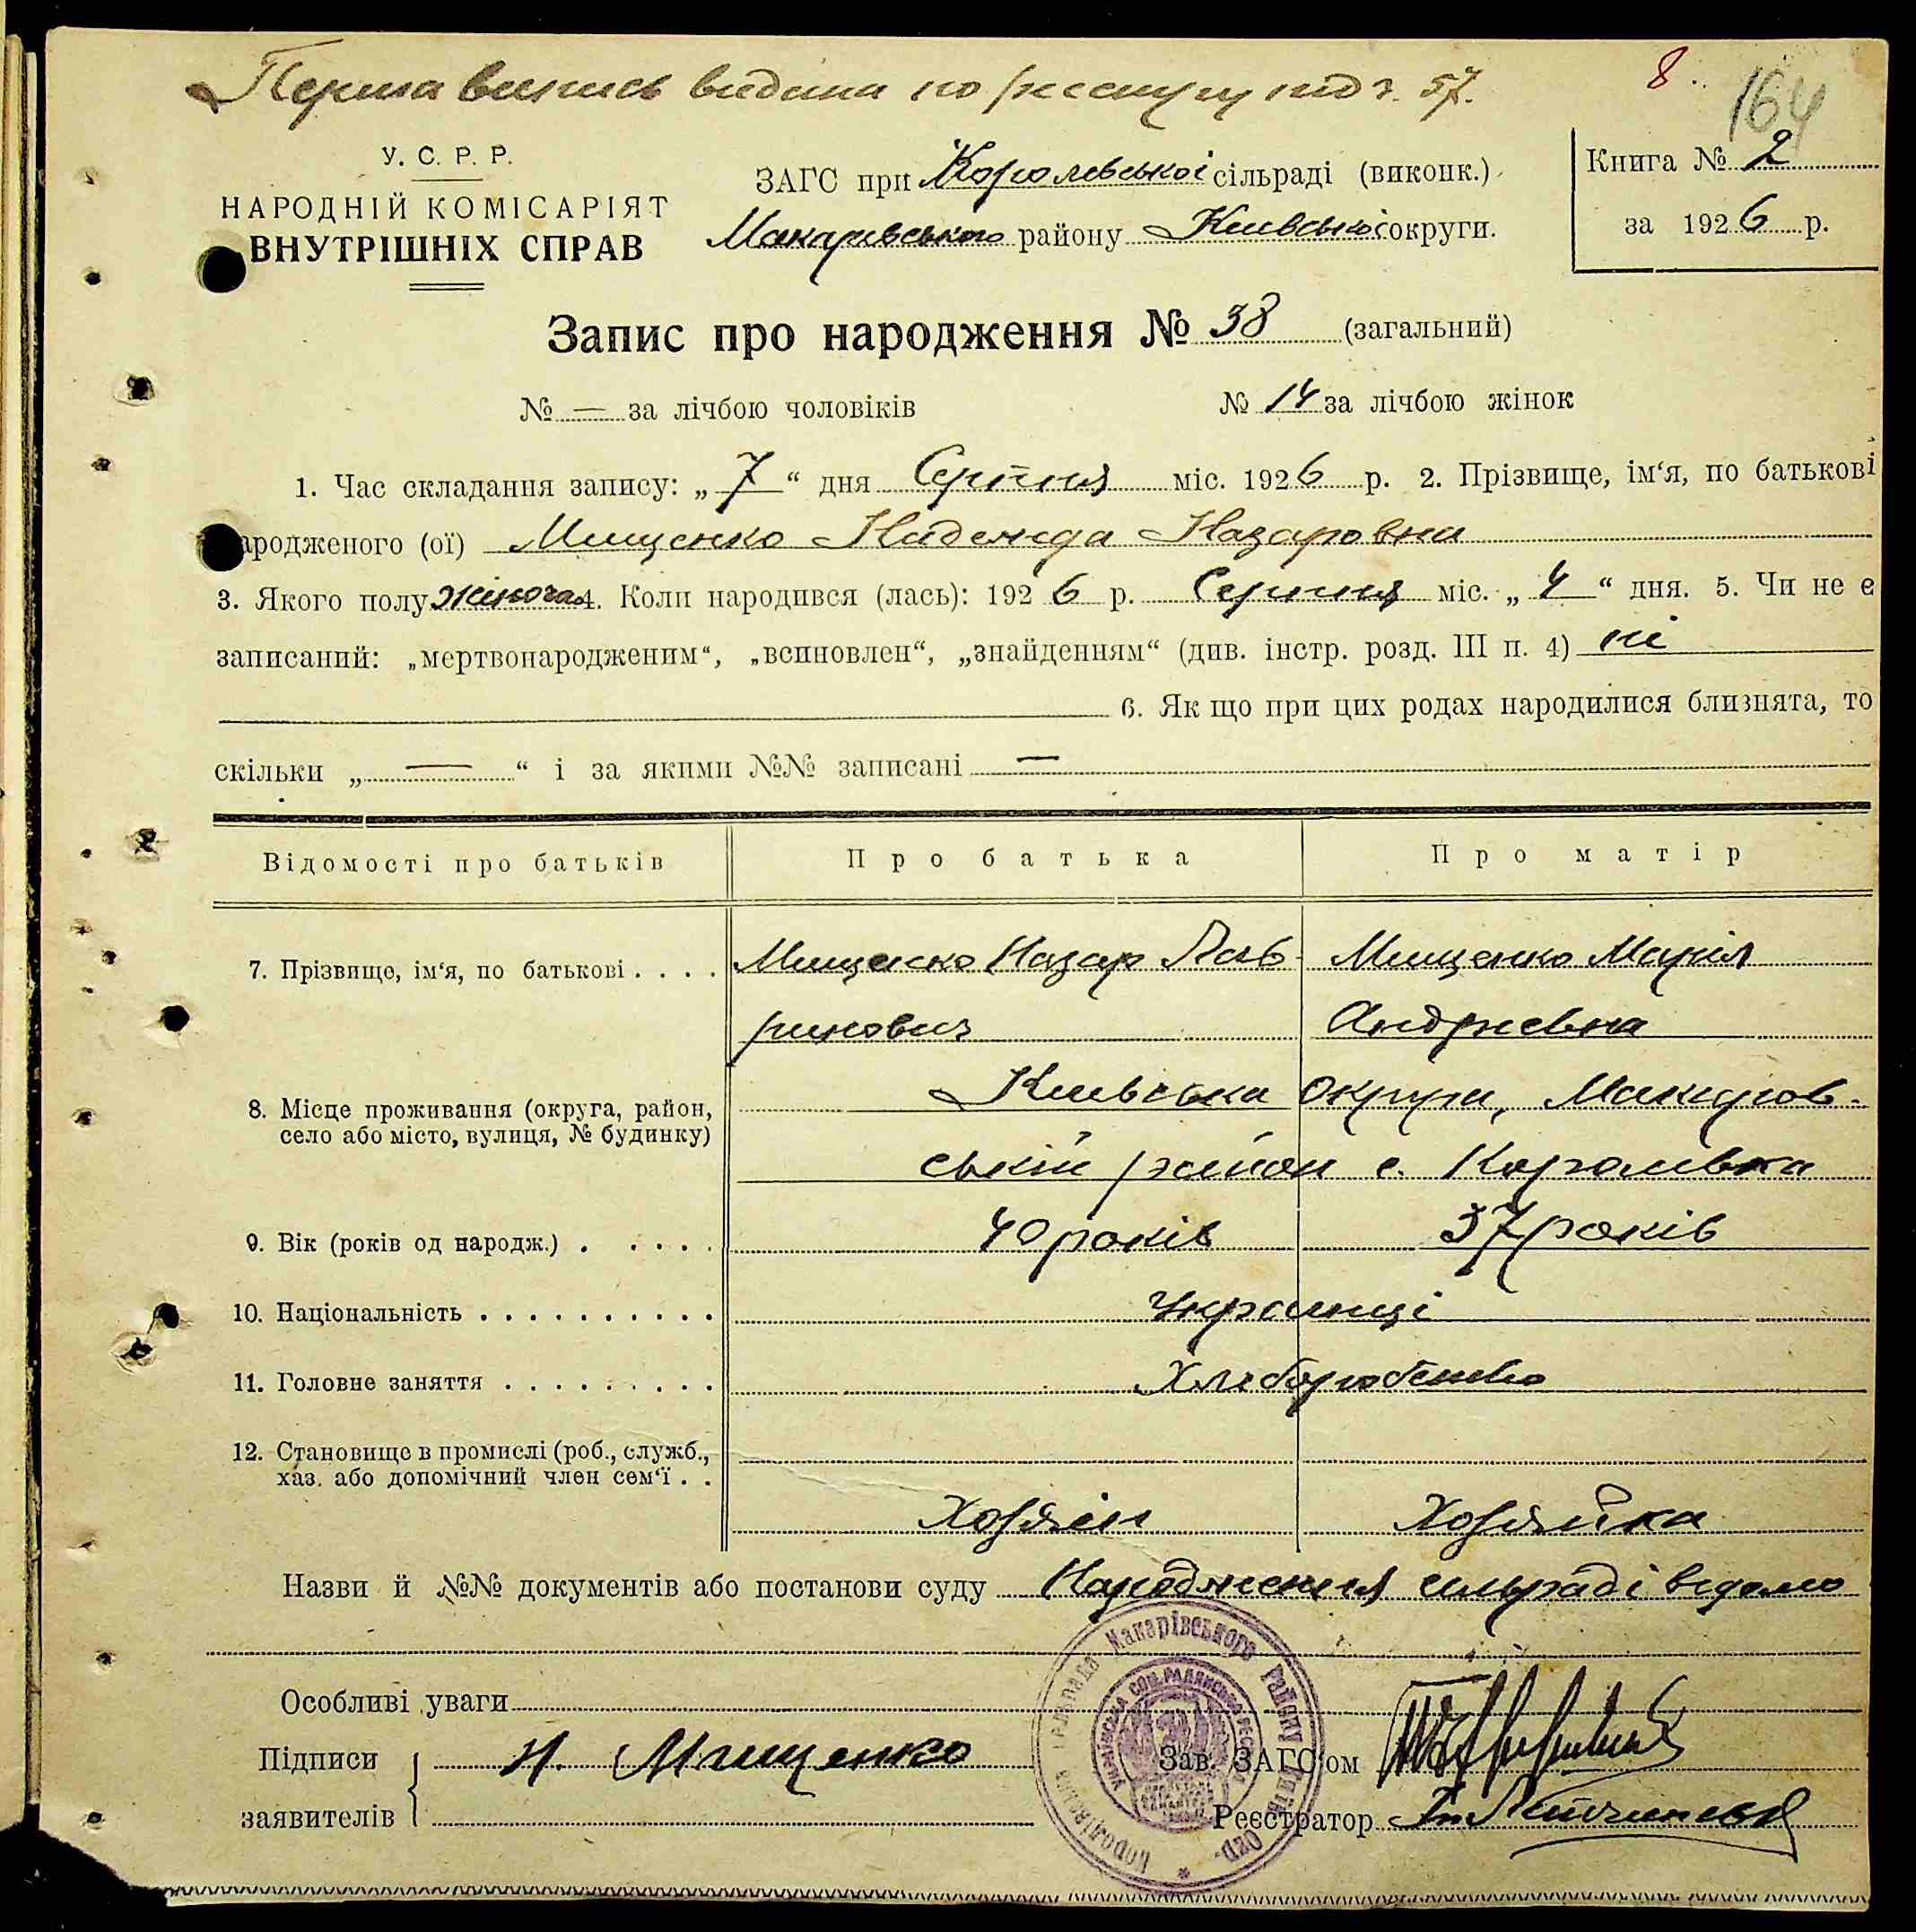 Перша випись видана по реєстру під ч. 57.
8.
164
У. С. Р. Р.
НАРОДНІЙ КОМІСАРІЯТ
ВНУТРІШНІХ СПРАВ
ЗАГС при Королевської сільраді (виконк.)
Макарівського району Київської округи.
Книга № 2
за 1926 р.
Запис про народження № 38 (загальний)
№ — за лічбою чоловіків № 14 за лічбою жінок
1. Час складання запису: „7“ дня Серпня міс. 1926 р. 2. Прізвище, ім‘я, по батькові
народженого (ої) Мищенко Надежда Назаровна
3. Якого полу жіночая 4. Коли народився (лась): 1926 р. Серпня міс. „4“ дня. 5. Чи не є
записаний: „мертвонародженим“, „всиновлен“, „знайденням“ (див. інстр. розд. III п. 4) ні
6. Як що при цих родах народилися близнята, то
скільки „—“ і за якими №№ записані —
Відомості про батьків Про батька Про матір
7. Прізвище, ім‘я, по батькові . . . . Мищенко Назар Лав- Мищенко Марія
ринович Андриевна
8. Місце проживання (округа, район, Київська Округа, Макаров-
село або місто, вулиця, № будинку) ській район с. Королівка
9. Вік (років од народж.) . . . . . 40 років 37 років
10. Національність . . . . . . . . . . Українці
11. Головне заняття . . . . . . . . . Хліборобство
12. Становище в промислі (роб., служб.,
хаз. або допомічний член сем‘ї . . Хозяін Хозяйка
Назви й №№ документів або постанови суду Народження сильраді відомо
Особливі уваги
Підписи Н. Мищенко Зав. ЗАГС‘ом
заявителів Реєстратор
Королівська сільрада Макарівського Району Київ. Окр.
УКРАЇНСЬКА СОЦ. РАДЯНСЬКА РЕСПУБЛІКА